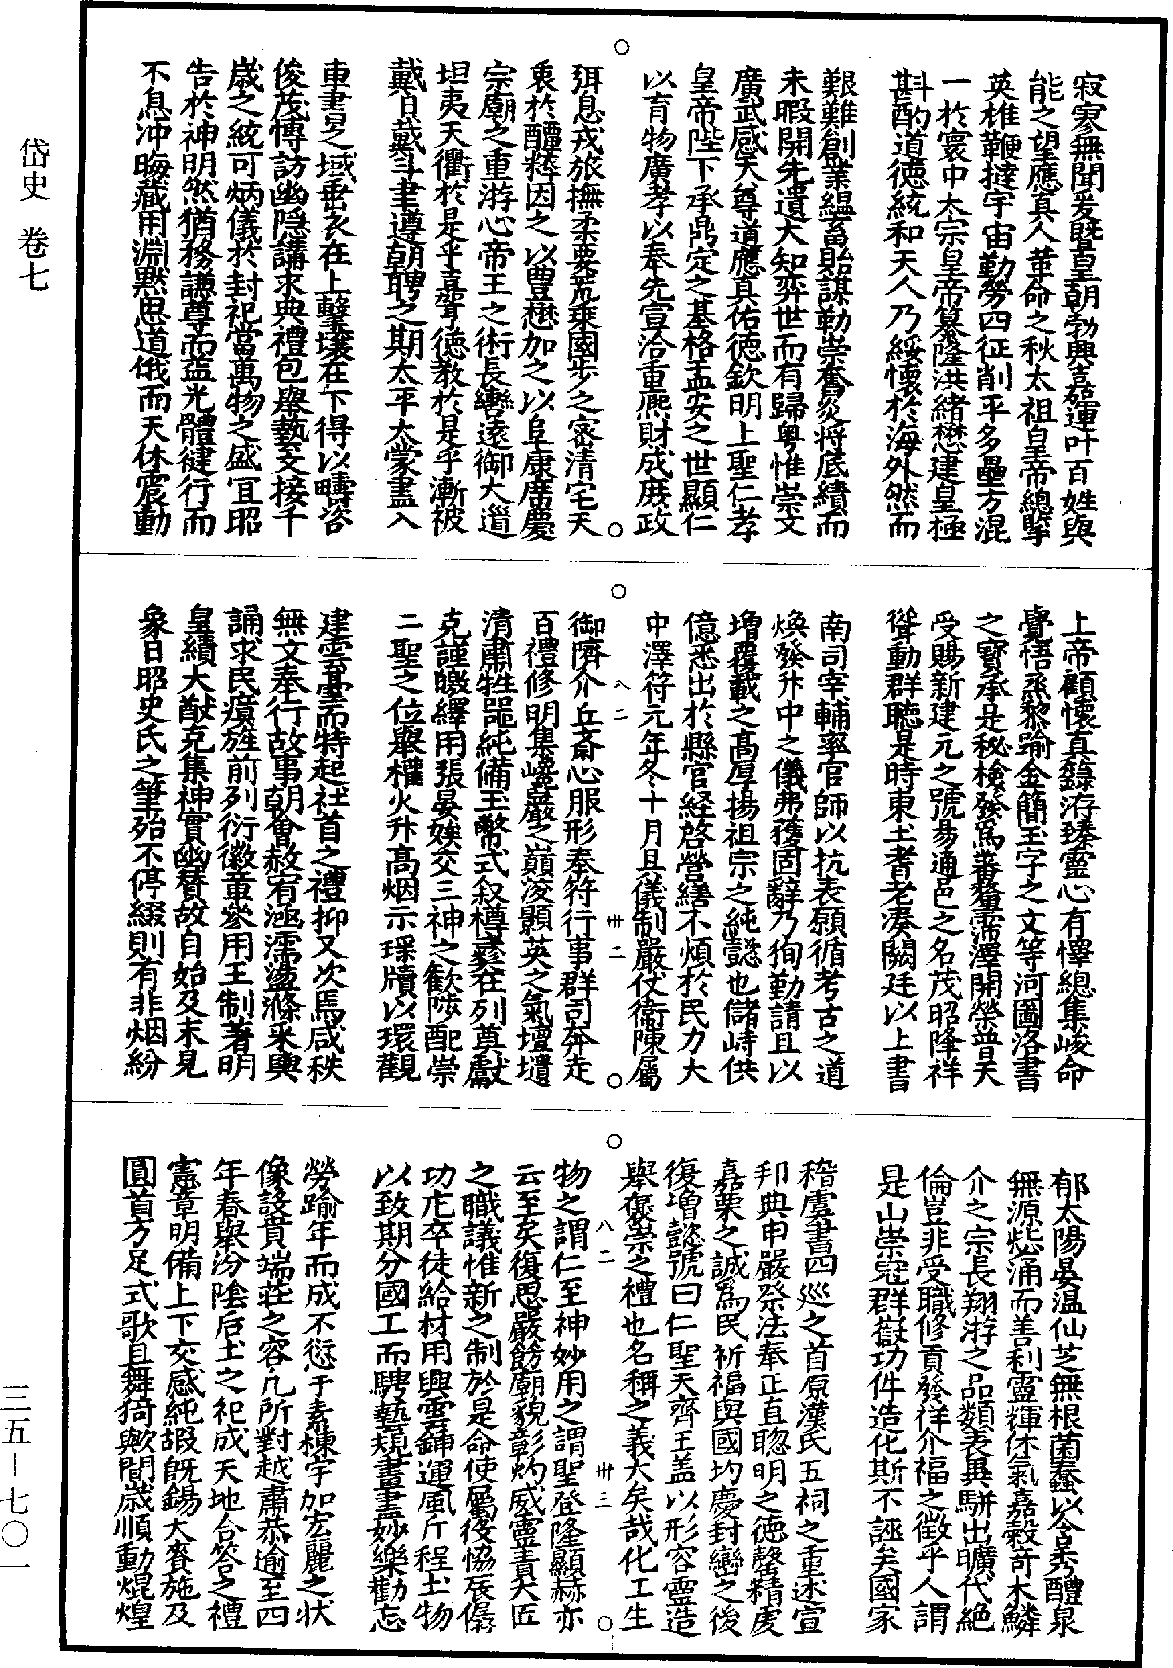 岱史 卷七
寂寥無聞爰曁皇朝勃興嘉運叶百姓與
能之望應真人革命之秋太祖皇帝總擥
英椎鞭撻宇宙勤勞四征削平多壘方混
一於寰中太宗皇帝纂隆洪緒懋建皇極
斟酌道德統和天人乃綏懷於海外然而
艱難創業緼畜貽謀勒崇奮炎將底績而
未暇開先遺大知弈世而有歸粤惟崇文
廣武感天尊道應真佑德欽明上聖仁孝
皇帝陛下承鼎定之基格盂安之世顯仁
以育物廣孝以奉先宣洽重熈財成庶政
弭息戎旅撫柔要荒乗國步之宻清宅天
衷於醲粹因之以豊懋加之以阜康席慶
宗廟之重游心帝王之術長轡遠御大
坦夷天衢於是乎喜聲德教於是乎漸被
戴日戴斗聿遵朝聘之期太平太蒙盡入
車書之域垂衣在上擊壤在下得以疇咨
俊茂愽訪幽隱講求典禮包舉藝文接千
歲之統可炳儀於封祀當萬物之盛宜昭
告於神明然猶務謙尊而益光體健行而
不息沖晦藏用淵黙思道俄而天休震動
上帝顧懷真籙洊臻靈心有懌總集峻命
覺悟烝黎踰金簡玉字之文等河圖洛書
之寳承是秘檢發爲蕃釐霈澤開榮普天
受賜新建元之號易通邑之名茂昭降祥
聳動群聽是時東土耆老湊闕廷以上書
南司宰輔率官師以抗表願循考古之道
煥發升中之儀弗獲固辭乃徇勤請且以
增覆載之高厚揚祖宗之純懿也儲峙供
億悉出於縣官経啓營繕不煩於民力大
中澤符元年冬十月具儀制嚴仗衛陳屬
八二 卅二
御隮介丘斎心服形奉符行事群司奔走
百禮修明集嵾巖之巔凌顥英之氣壇壝
清肅牲噐純備玉幣式叙樽彞在列奠獻
克謹皦繹用張晏娭交三神之歡陟配崇
二聖之位舉權火升高烟示琛牘以環觀
建雲臺而特起社首之禮抑又次焉咸秩
無文奉行故事朝會赦宥涵濡盪滌釆輿
誦求民瘼旌前列衍徽章參用王制著明
皇績大猷克集神實幽賛故自始及末見
象日昭史氏之筆殆不停綴則有非烟紛
郁太陽晏温仙芝無根菌蠢以含秀醴泉
無源觱涌而善利靈輝休氣嘉穀竒木鱗
介之宗長翔游之品類表異駢出曠代絶
倫豈非受職修貢發祥介福之徴乎人謂
是山崇冠群嶽功侔造化斯不誣矣國家
稽虞書四巡之首原漢氏五祠之重述宣
邦典申嚴祭法奉正直聦明之德罄精虔
嘉栗之誠爲民祈福與國均慶封巒之後
復增懿號曰仁聖天齊王盖以形容靈造
舉褒崇之禮也名稱之義大矣哉化工生
八二 卅三
物之謂仁至神妙用之謂聖登隆顯赫亦
云至矣復思嚴飭廟貌彰灼威靈責大匠
之職議惟新之制於是命使屬役恊辰僝
功庀卒徒給材用興雲鍤運風斤程土物
以致期分國工而騁藝規畫盡妙樂勸忘
勞踰年而成不愆于素棟宇加宏麗之状
像設貫端荘之容凢所對越肅恭逾至四
年春舉汾陰后土之祀成天地合荅之禮
憲章明備上下交感純嘏旣錫大賚施及
圓首方足式歌且舞猗歟間歲順動焜煌
三五－七〇一